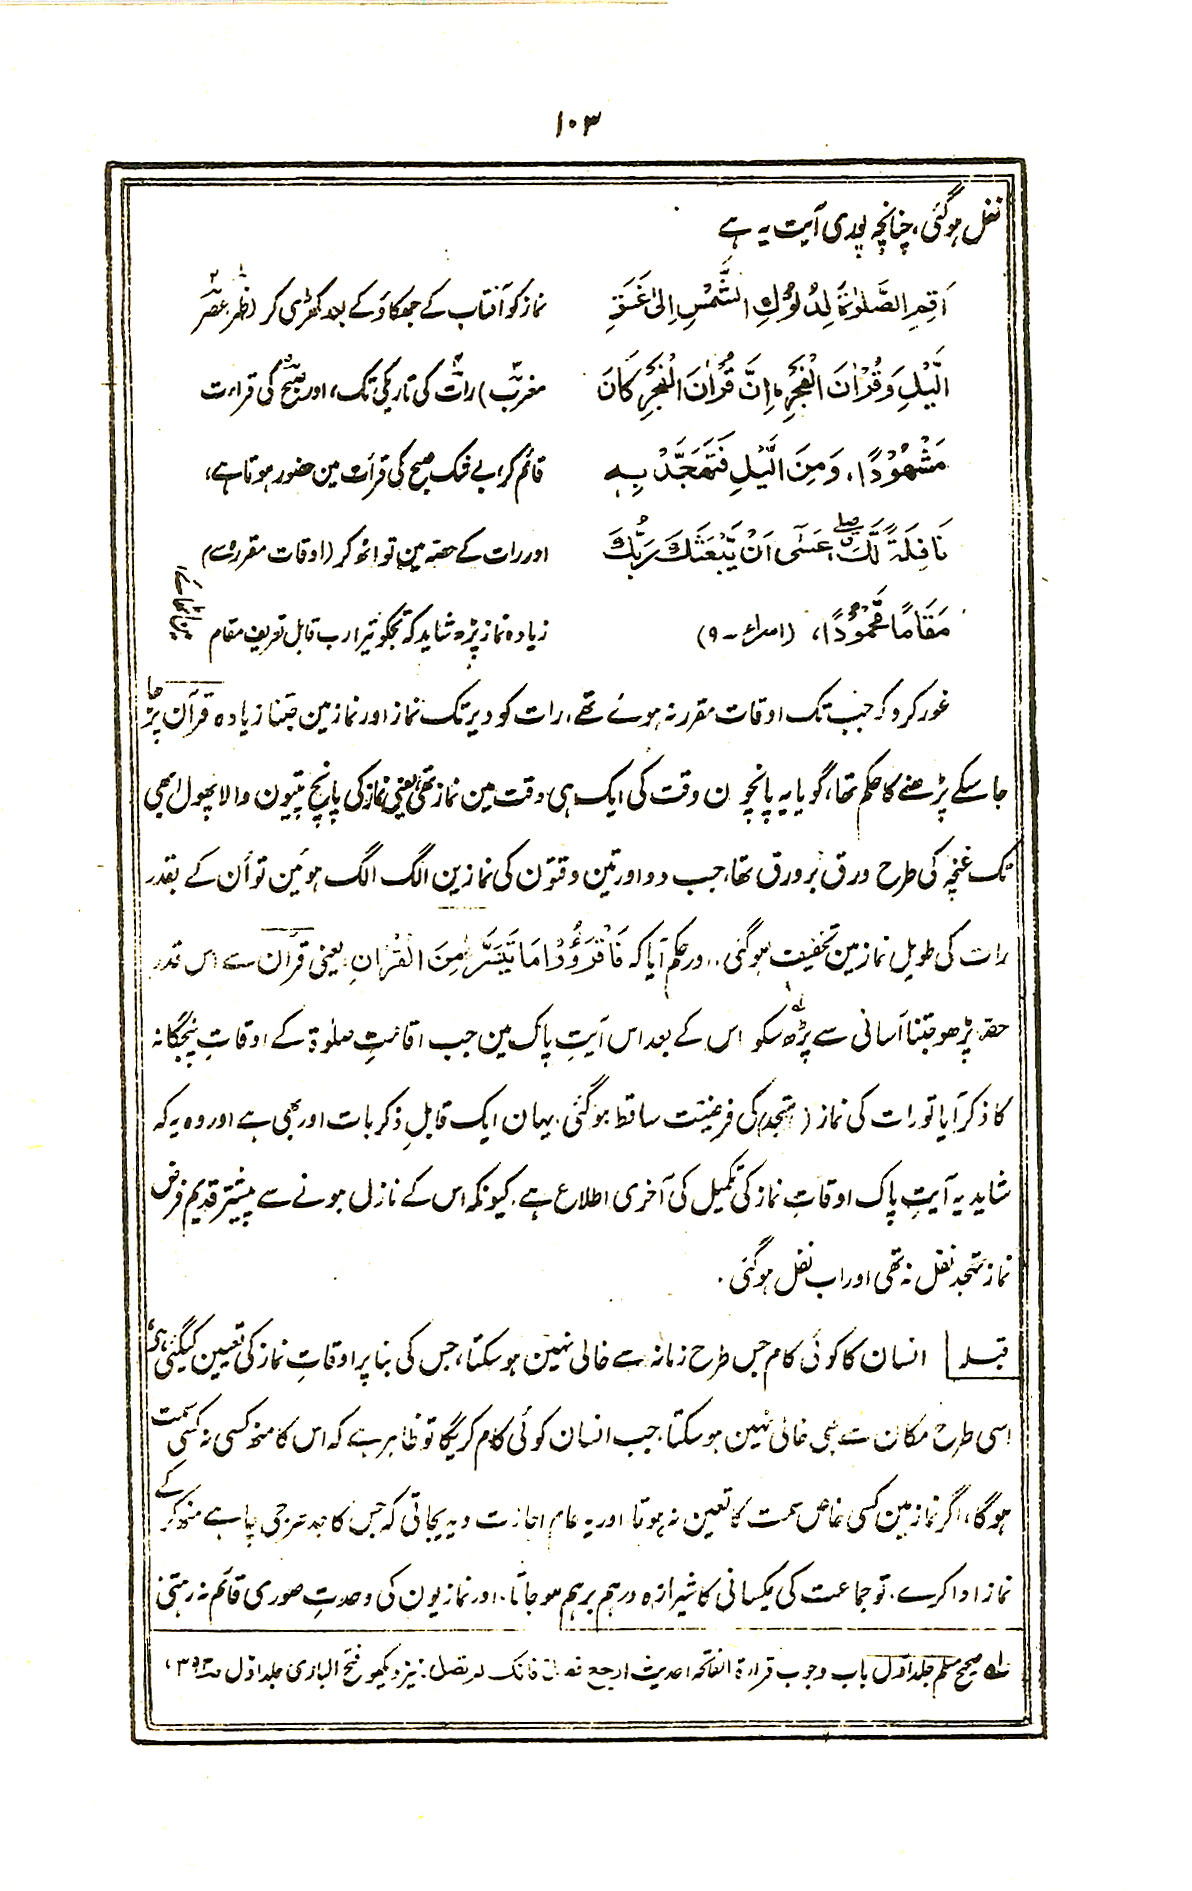 ۱۰۳
نفل ہوگئی، چنانچہ پوری آیت یہ ہے
اَقِمِ الصَّلوٰةَ لِدُلُوْكِ الشَّمْسِ اِلىٰ غَسَقِ نماز کو آفتاب کے جھکاؤ کے بعد کھڑی کر (ظہر عصر
الَّيْلِ وَقُرْاٰنَ الْفَجْرِ، اِنَّ قُرْاٰنَ الْفَجْرِ كَانَ مغرب) رات کی تاریکی تک، اور صبح کی قراءت
مَشْهُوْدًا، وَمِنَ الَّيْلِ فَتَهَجَّدْ بِهٖ قائم کر، بے شک صبح کی قرأت مین حضور ہوتا ہے،
نَافِلَةً لَّكَ، عَسٰٓى اَنْ يَّبْعَثَكَ رَبُّكَ اور رات کے حصہ مین تو اٹھ کر (اوقات مقررہ سے)
مَقَامًا مَّحْمُوْدًا، (اسراء - ۹) زیادہ نماز پڑھ شاید کہ تجکو تیرا رب قابل تعریف مقام
غور کرو کہ جب تک اوقات مقرر نہ ہوئے تھے، رات کو دیر تک نماز اور نماز مین جتنا زیادہ قرآن پڑھا
جا سکے پڑھنے کا حکم تھا، گویا یہ پانچون وقت کی ایک ہی وقت مین نماز تھی یعنی نماز کی پانچ پتیون والا پھول ابھی
تک غنچہ کی طرح ورق بر ورق تھا، جب دو اور تین وقتون کی نمازین الگ الگ ہوئین تو اُن کے بقدر
رات کی طویل نماز مین تخفیف ہوگئی، اور حکم آیا کہ فَاقْرَءُوْا مَا تَيَسَّرَ مِنَ الْقُرْاٰنِ یعنی قرآن سے اس قدر
حصہ پڑھو جتنا آسانی سے پڑھ سکو اس کے بعد اس آیتِ پاک مین جب اقامتِ صلوٰۃ کے اوقاتِ پنجگانہ
کا ذکر آیا تو رات کی نماز (تہجد) کی فرضیت ساقط ہوگئی، یہان ایک قابلِ ذکر بات اور بھی ہے اور وہ یہ کہ
شاید یہ آیتِ پاک اوقاتِ نماز کی تکمیل کی آخری اطلاع ہے، کیونکہ اس کے نازل ہونے سے پیشتر قدیم فرض
نماز تہجد نفل نہ تھی اور اب نفل ہوگئی.
قبلہ انسان کا کوئی کام جس طرح زمانہ سے خالی نہین ہو سکتا، جس کی بنا پر اوقاتِ نماز کی تعیین کیگئی ہی،
اسی طرح مکان سے بھی خالی نہین ہو سکتا، جب انسان کوئی کام کریگا تو ظاہر ہے کہ اس کا منھ کسی نہ کسی سمت
ہوگا، اگر نماز مین کسی خاص سمت کا تعین نہ ہوتا اور یہ عام اجازت دیدیجاتی کہ جس کا جدھر جی چاہے منھ کر کے
نماز ادا کرے، تو جماعت کی یکسانی کا شیرازہ درہم برہم ہو جاتا، اور نمازیون کی وحدتِ صوری قائم نہ رہتی،
لہ صحیح مسلم جلد اول باب وجوب قراءة الفاتحہ احدیث ارجع فصل فانک لم تصل. نیز دیکھو فتح الباری جلد اول